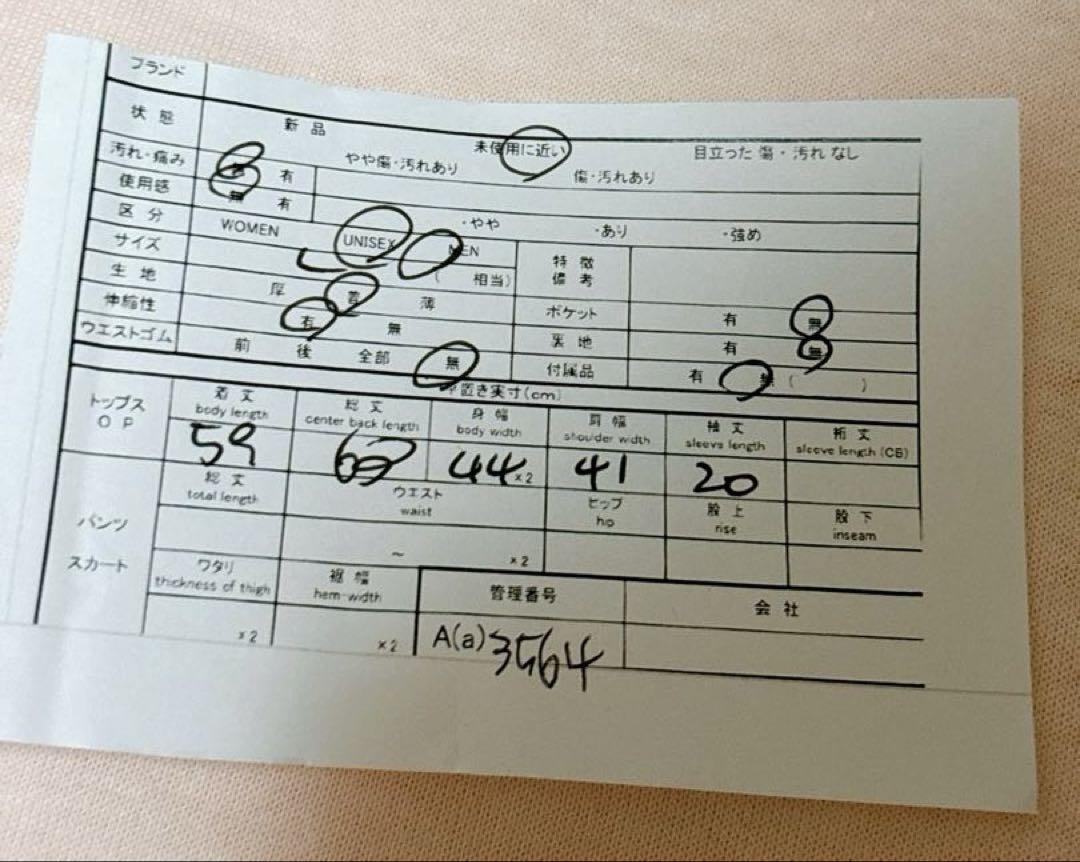 ブランド
状態 新品 未使用に近い 目立った傷・汚れなし
やや傷・汚れあり 傷・汚れあり
汚れ・痛み 有
使用感 無 有 ・やや ・あり ・強め
区分 WOMEN UNISEX MEN 特徴備考
サイズ L ( 相当)
生地 厚 普 薄 ポケット 有 無
伸縮性 有 無 裏地 有 無
ウエストゴム 前 後 全部 無 付属品 有 無 ( )
平置き実寸(cm)
トップス OP 着丈 総丈 身幅 肩幅 袖丈 裄丈
body length center back length body width shoulder width sleeve length sleeve length (CB)
59 44 ×2 41 20
パンツ スカート 総丈 ウエスト ヒップ 股上 股下
total length waist hip rise inseam
~ ×2
ワタリ 裾幅 管理番号 会社
thickness of thigh hem-width
×2 ×2 A(a) 3564